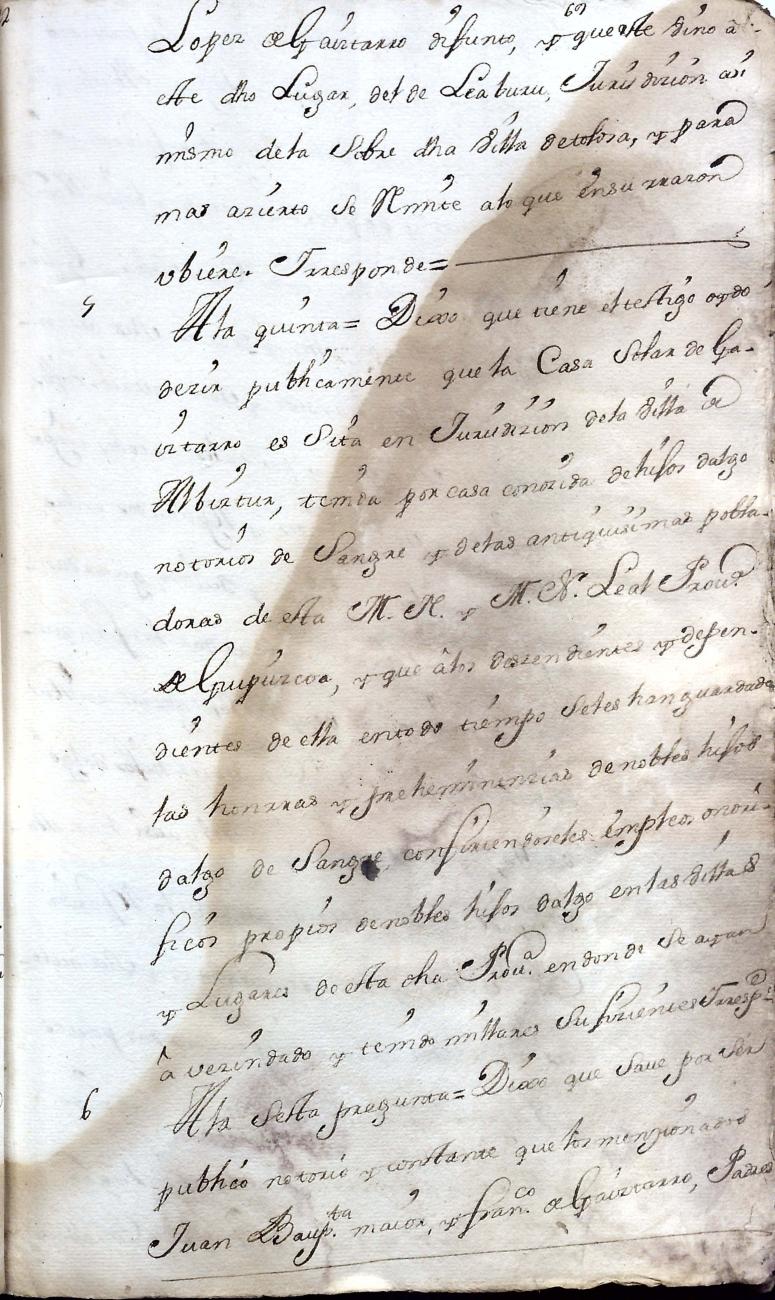 Lopez de Gaiztarro difunto, y que este vino â
este dho Lugar, del de Leaburu, Jurisdizion asi
mismo de la Sobre dha Villa de tolosa, y para
mas azierto se Remite a lo que en su rrazon
ubiere. Yrresponde=
5 A la quinta= Dixo que tiene el testigo oydo
dezir publicamente que la Casa Solar de Ga-
iztarro es Sita en Jurisdizion de la Villa de
Albiztur, tenida por casa conozida de hijos dalgo
notorios de Sangre y de las antiquisimas pobla-
doras de esta M. N. y M. L. Leal Prouª
de Guipuzcoa, y que â los dezendientes y depen-
dientes de ella en todo tiempo se les han guardado
las honrras y preheminenzias de nobles hijos
dalgo de Sangre, confiriendoseles empleos onori-
ficos propios de nobles hijos dalgo en las Villas
y Lugares de esta dha Prouª. en donde se ayan
â vezindado y tenido millares Sufizientes Yrrespᵈᵉ
6 A la Sesta pregunta= Dixo que Save por ser
publico notorio y constante que los menzionados
Juan Baupᵗᵃ. maior, y franᶜᵒ de Gaiztarro, Padres